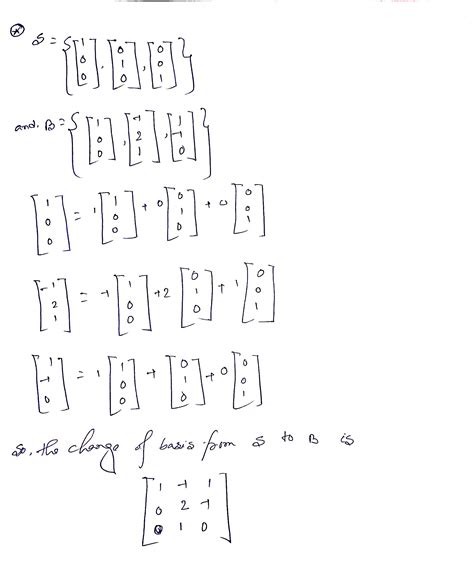 S = { [1 0 0], [0 1 0], [0 0 1] }
and. B = { [1 0 0], [-1 2 1], [1 -1 0] }
[1 0 0] = 1 [1 0 0] + 0 [0 1 0] + 0 [0 0 1]
[-1 2 1] = -1 [1 0 0] + 2 [0 1 0] + 1 [0 0 1]
[1 -1 0] = 1 [1 0 0] -1 [0 1 0] + 0 [0 0 1]
So, the change of basis from S to B is
[ 1 -1 1
0 2 -1
0 1 0 ]